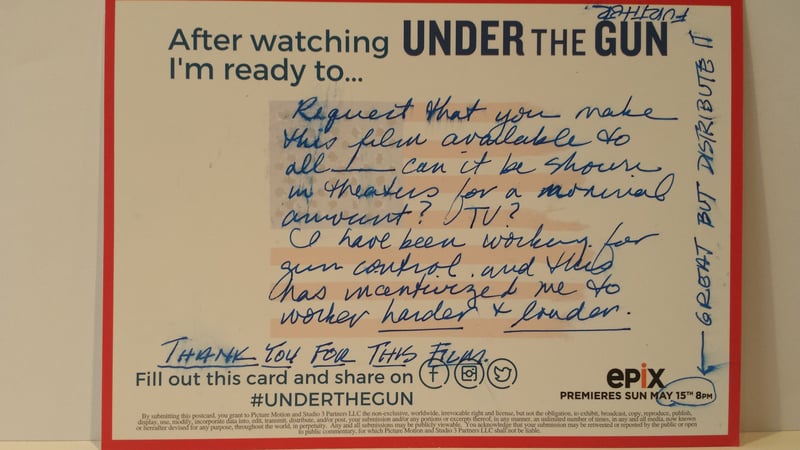 After watching UNDER THE GUN
I'm ready to...
Request that you make
this film available to
all — can it be shown
in theaters for a nominal
amount? TV?
I have been working for
gun control and this
has incentivized me to
worker harder & louder.
THANK YOU FOR THIS FILM.
Fill out this card and share on
#UNDERTHEGUN
epix
PREMIERES SUN MAY 15TH 8PM
GREAT BUT DISTRIBUTE IT
FURTHER.
By submitting this postcard, you grant to Picture Motion and Studio 3 Partners LLC the non-exclusive, worldwide, irrevocable right and license, but not the obligation, to exhibit, broadcast, copy, reproduce, publish,
display, use, modify, incorporate data into, edit, transmit, distribute, and/or post, your submission and/or any portions or excerpts thereof, in any manner, an unlimited number of times, in any and all media, now known
or hereafter devised for any purpose, throughout the world, in perpetuity. Any and all submissions may be publicly viewable. You acknowledge that your submission may be retweeted or reposted by the public or open
to public commentary, for which Picture Motion and Studio 3 Partners LLC shall not be liable.